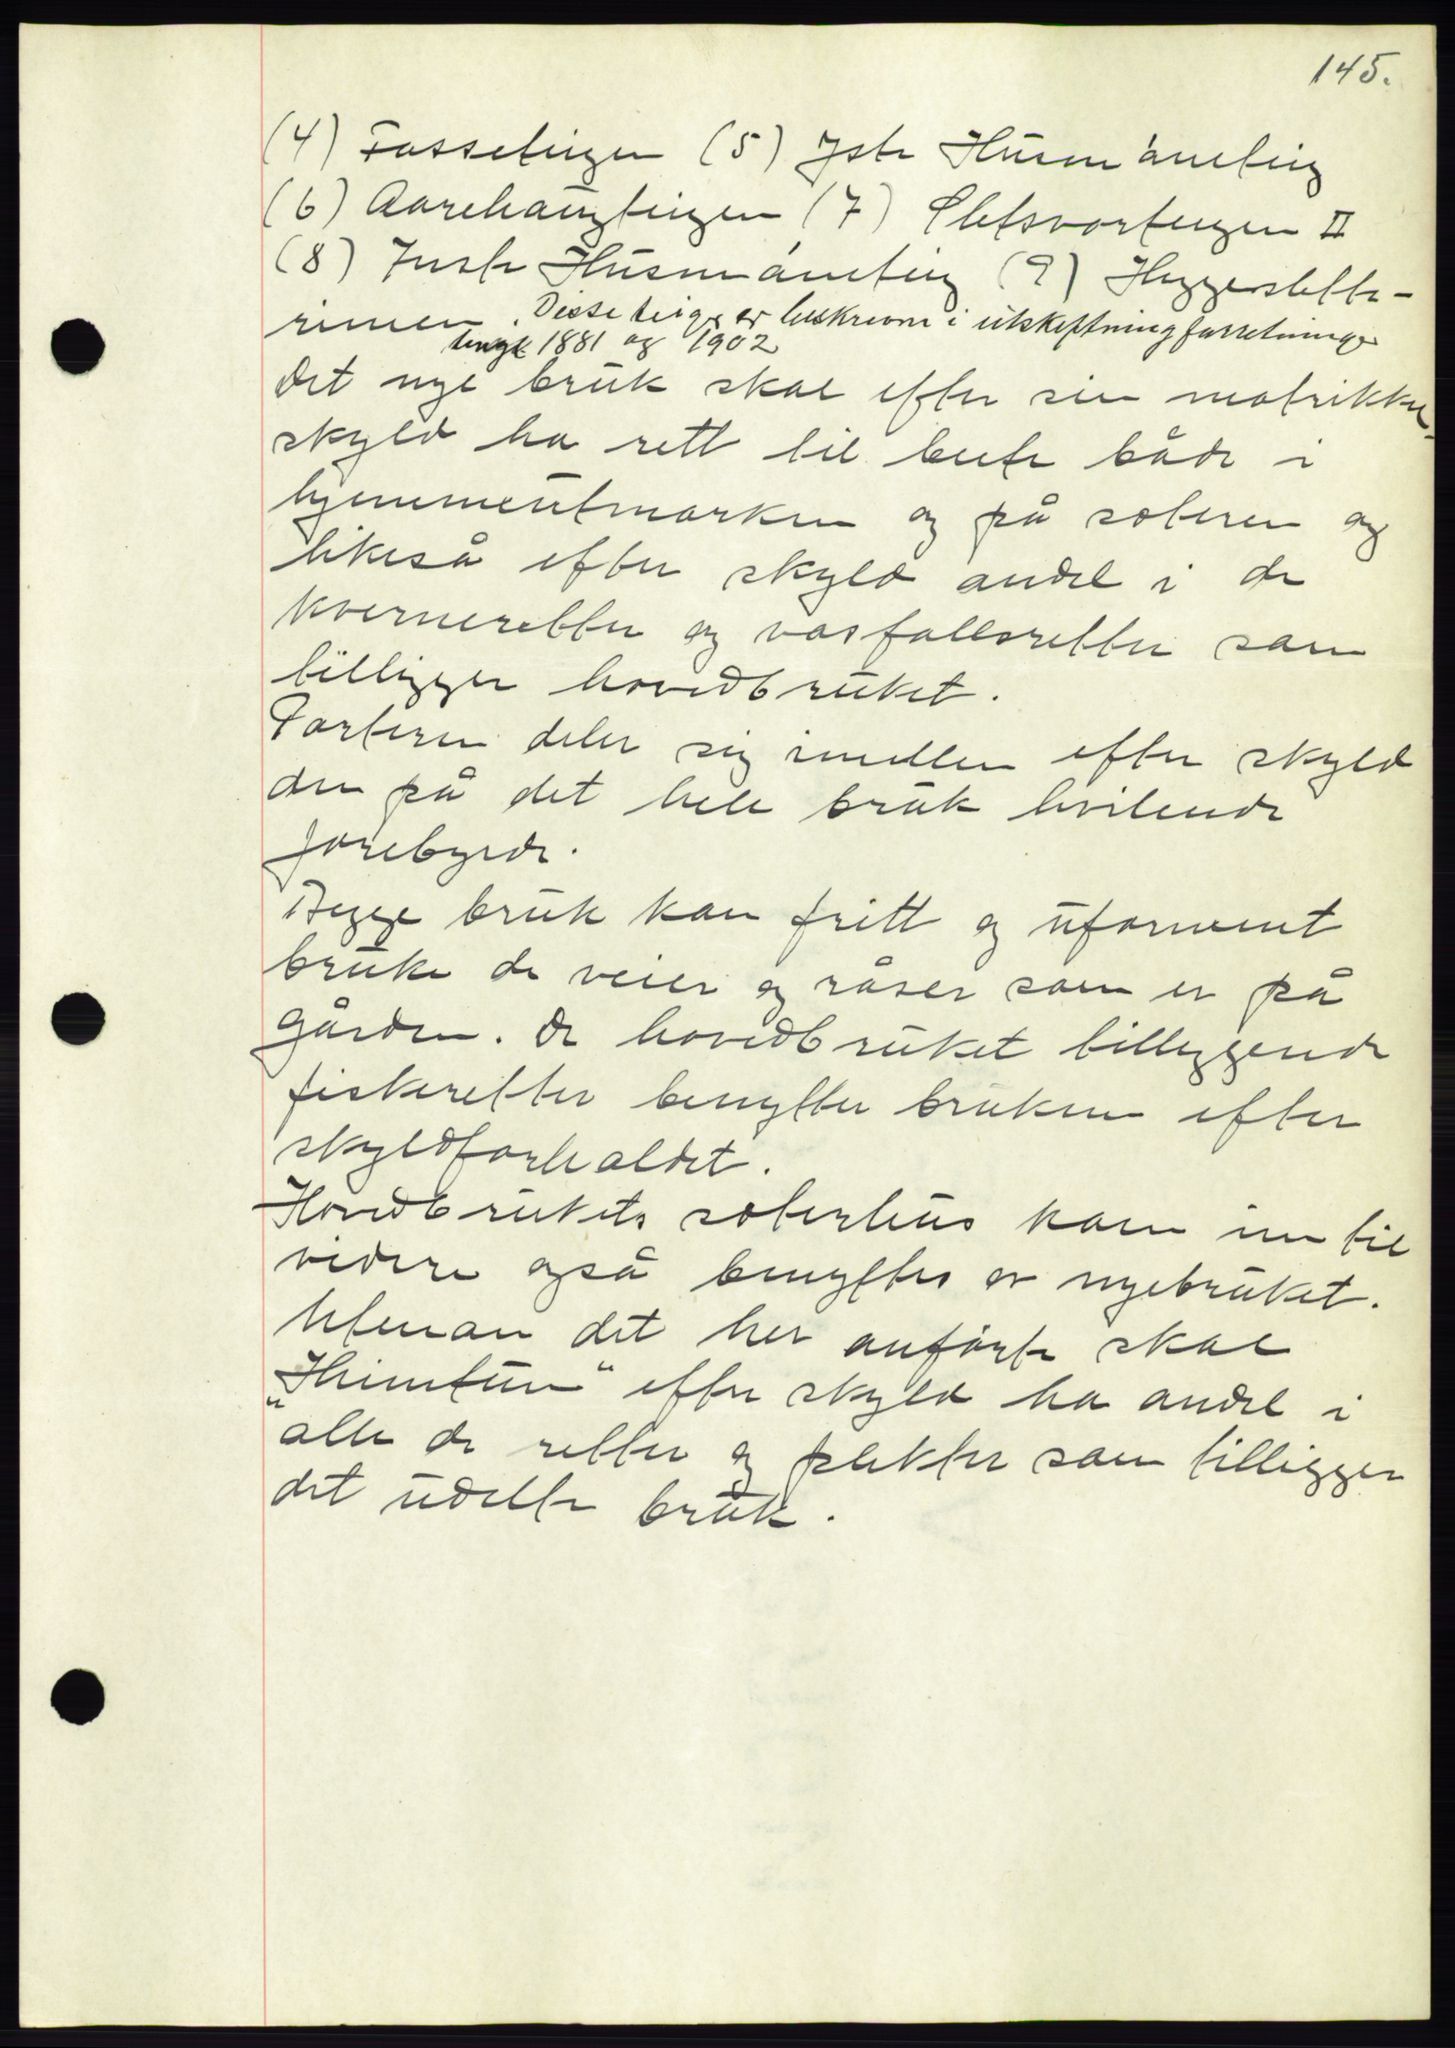 145.
(4) Fosseteigen (5) Iste Husmånsteig
(6) Aarehaugteigen (7) Sletsvorteigen II
(8) Inste Husmånsteig (9) Heggersletta-
rimen. Disse teiger er beskrevne i utskiftningsforretninger
tingl 1881 og 1902
Det nye bruk skal efter sin matrikkul-
skyld ha rett til beite både i
hjemmeutmarken og på seteren og
likeså efter skyld andel i de
kvernretter og vasfallsretter som
tilligger hovedbruket.
Parterne deler sig imellem efter skyld
den på det hele bruk hvilende
forebyrde.
Begge bruk kan fritt og uforment
bruke de veier og råser som er på
gården. De hovedbruket tilliggende
fiskeretter benytter brukene efter
skyldforholdet.
Hovedbrukets seterhus kan inn til
videre også benyttes av nyebruket.
Utenom det her anførte skal
"Heimtun" efter skyld ha andel i
alle de retter og plikter som tilligger
det udelte bruk.